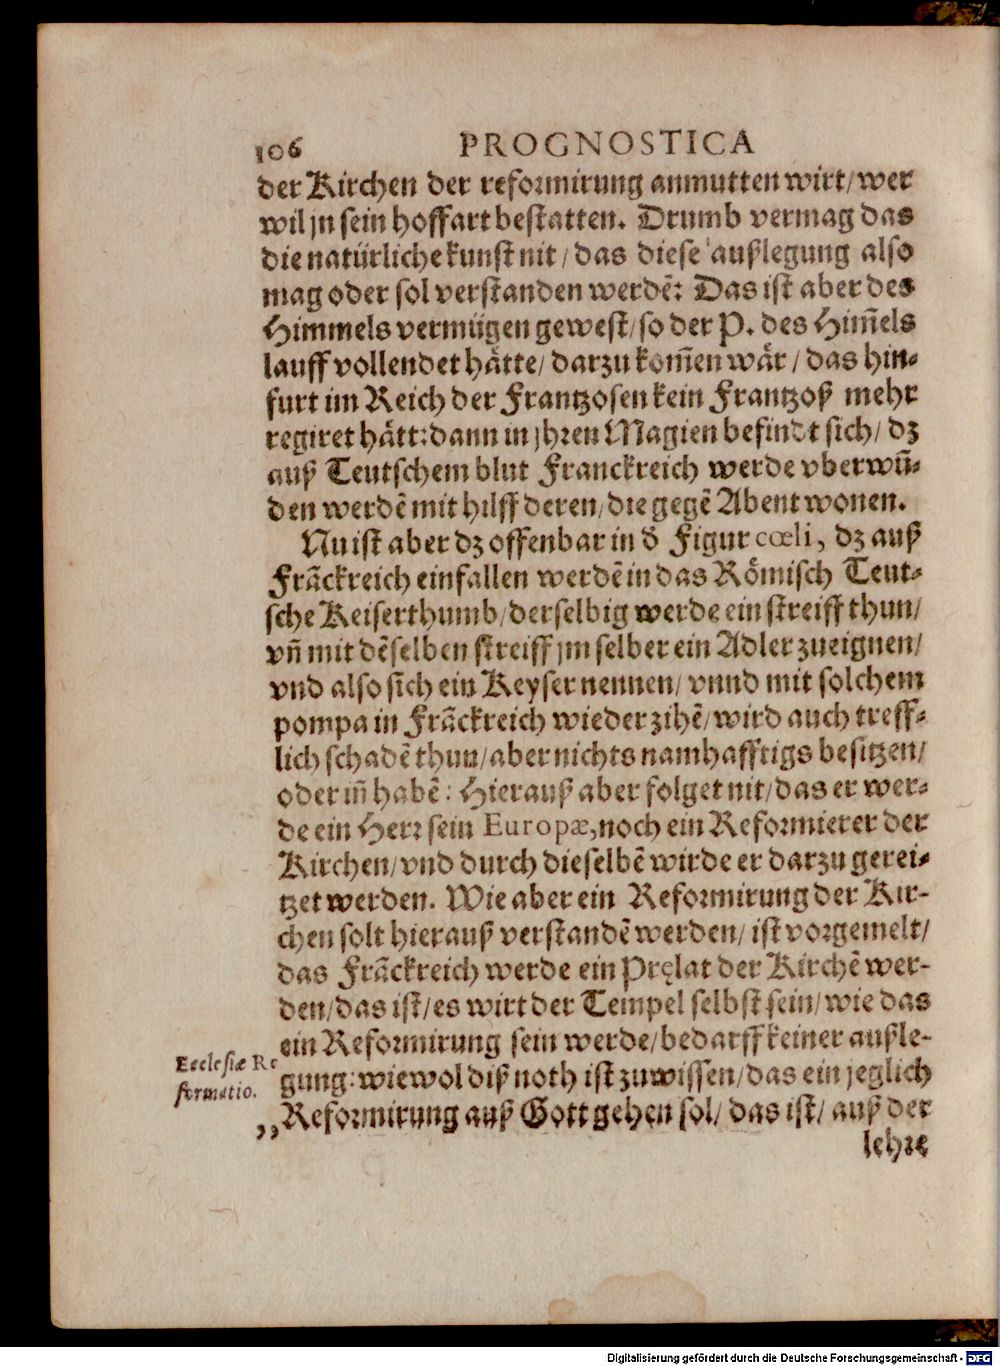 106 PROGNOSTICA
der Kirchen der reformirung anmutten wirt/ wer
wil jn sein hoffart bestatten. Drumb vermag das
die natürliche kunst nit/ das diese außlegung also
mag oder sol verstanden werdē: Das ist aber des
Himmels vermügen gewest/ so der P. des Him̃els
lauff vollendet hätte/ darzu kom̃en wär/ das hin-
furt im Reich der Frantzosen kein Frantzoß mehr
regiret hätt: dann in jhren Magien befindt sich/ dz
auß Teutschem blut Franckreich werde vberwũ-
den werdē mit hilff deren/ die gegē Abent wonen.
Nu ist aber dz offenbar in d̓ Figur cœli, dz auß
Frãckreich einfallen werdē in das Römisch Teut-
sche Keiserthumb/ derselbig werde ein streiff thun/
vñ mit dēselben streiff jm selber ein Adler zueignen/
vnd also sich ein Keyser nennen/ vnnd mit solchem
pompa in Frãckreich wieder zihē/ wird auch treff-
lich schadē thun/ aber nichts namhafftigs besitzen/
oder iñ habē: Hierauß aber folget nit/ das er wer-
de ein Herr sein Europæ, noch ein Reformierer der
Kirchen/ vnd durch dieselbē wirde er darzu gerei-
tzet werden. Wie aber ein Reformirung der Kir-
chen solt hierauß verstandē werden/ ist vorgemelt/
das Frãckreich werde ein Pręlat der Kirchē wer-
den/ das ist/ es wirt der Tempel selbst sein/ wie das
ein Reformirung sein werde/ bedarff keiner außle-
Ecclesiæ Re
formatio.
gung: wiewol diß noth ist zuwissen/ das ein jeglich
,,Reformirung auß Gott gehen sol/ das ist/ auß der
lehre
Digitalisierung gefördert durch die Deutsche Forschungsgemeinschaft - DFG